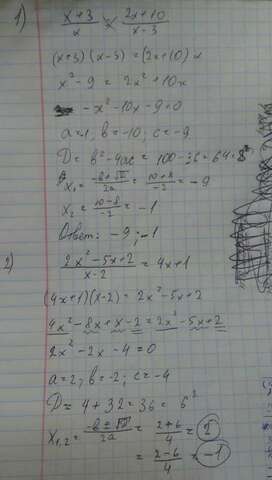 1) x+3/x × 2x+10/x-3
(x+3)(x-3)=(2x+10)x
x²-9=2x²+10x
-x²-10x-9=0
a=-1, b=-10; c=-9
D=b²-4ac=100-36=64=8²
x₁=-b+√D/2a=10+8/-2=-9
x₂=10-8/-2=-1
Ответ: -9;-1
2) 2x²-5x+2/x-2=4x+1
(4x+1)(x-2)=2x²-5x+2
4x²-8x+x-2=2x²-5x+2
2x²-2x-4=0
a=2, b=-2; c=-4
D=4+32=36=6²
X₁,₂=-b±√D/2a=2+6/4=2
=2-6/4=-1